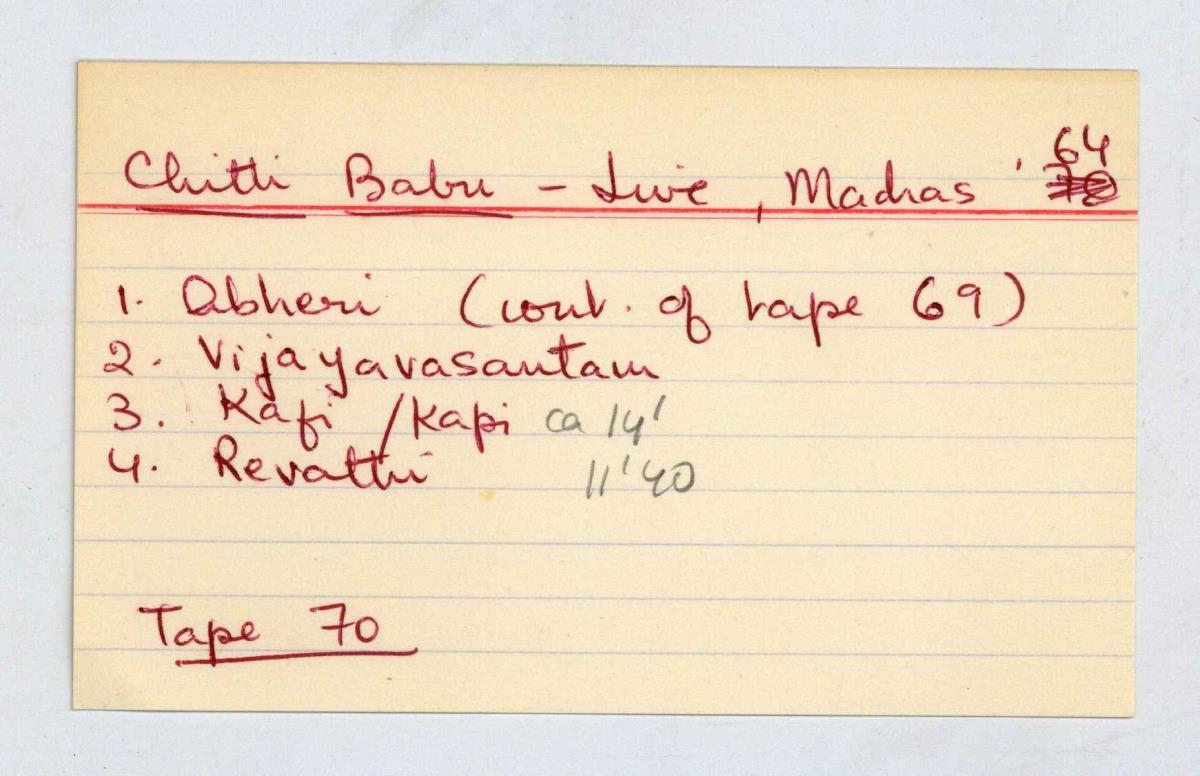 Chitti Babu - Live, Madras '64
1. Abheri (cont. of tape 69)
2. Vijayavasantam
3. Kafi / Kapi ca 14'
4. Revathi 11'40
Tape 70